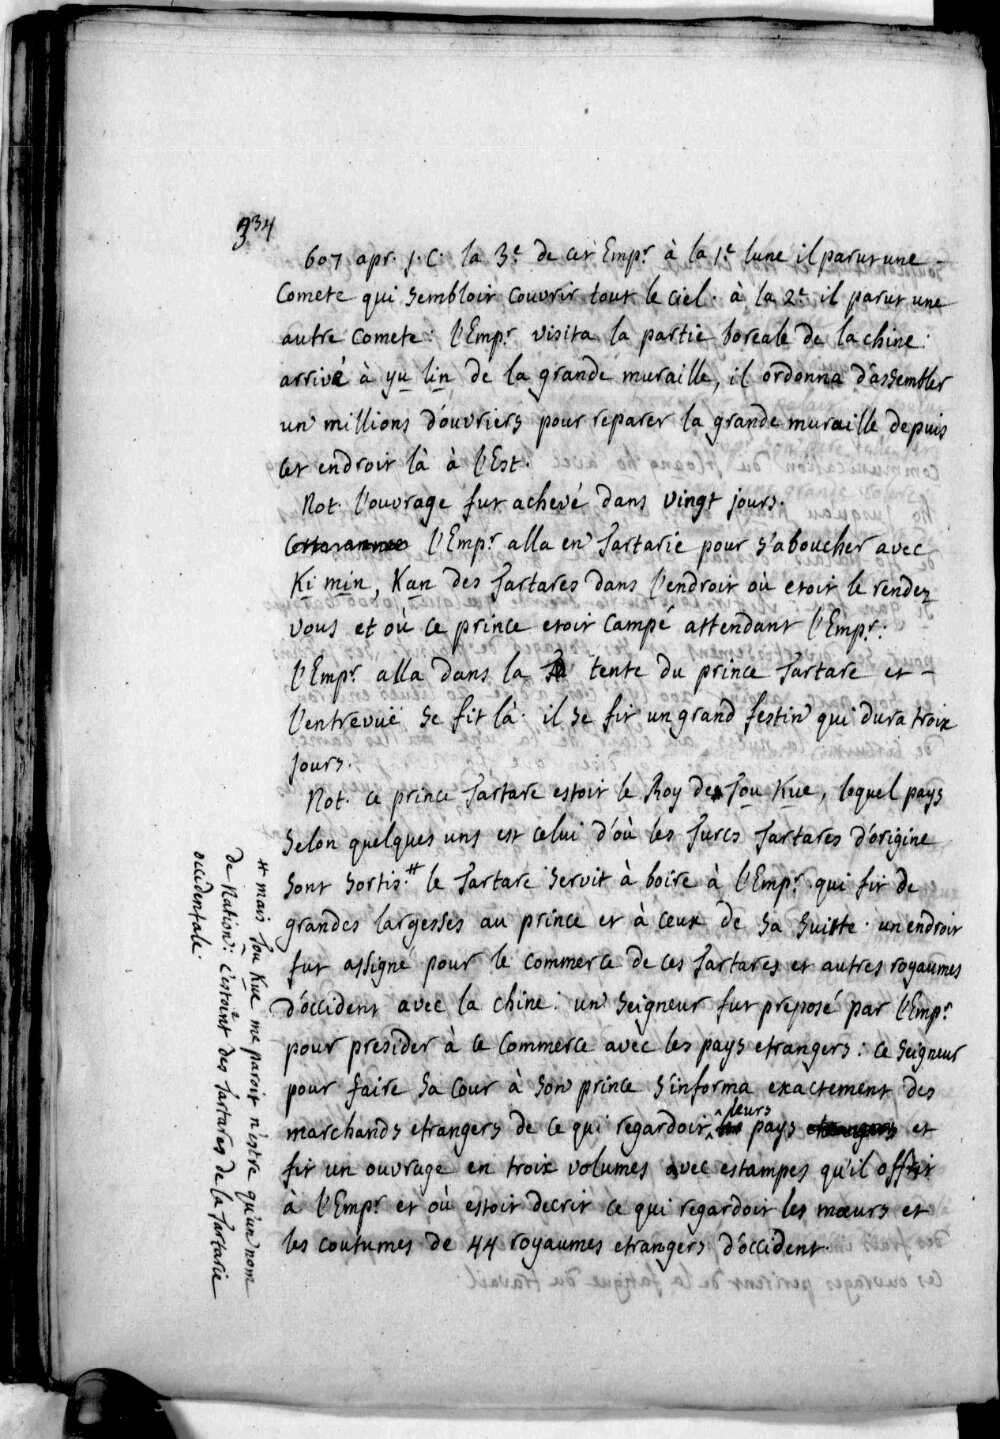 334
607 apr. J. C. la 3.e de cet Emp.r à la 1.e lune il parut une
Comete qui sembloit couvrir tout le ciel. à la 2.e il parut une
autre Comete: l'Emp.r visita la partie boreale de la chine:
arrivé à yu lin de la grande muraille, il ordonna d'assembler
un millions d'ouvriers pour reparer la grande muraille depuis
cet endroit là à l'Est.
Not. l'ouvrage fut achevé dans vingt jours.
l'Emp.r alla en Tartarie pour s'aboucher avec
Ki min, Kan des Tartares dans l'endroit où etoit le rendez
vous et où ce prince etoit campé attendant l'Emp.r:
l'Emp.r alla dans la tente du prince Tartare et
l'entrevuë se fit là. il se fit un grand festin qui dura troix
jours.
Not. ce prince Tartare estoit le Roy de Tou Kue, lequel pays
selon quelques uns est celui d'où les Turcs Tartares d'origine
sont sortis.# le Tartare servit à boire à l'Emp.r qui fit de
grandes largesses au prince et à ceux de sa suitte. un endroit
fut assigné pour le commerce de ces Tartares et autres royaumes
d'occident avec la chine: un seigneur fut preposé par l'Emp.r
pour presider à ce commerce avec les pays etrangers: ce seigneur
pour faire sa cour à son prince s'informa exactement des
marchands etrangers de ce qui regardoit leurs pays et
fit un ouvrage en troix volumes avec estampes qu'il offrit
à l'Emp.r et où estoit decrit ce qui regardoit les mœurs et
les coutumes de 44 royaumes etrangers d'occident.
# mais Tou Kue me paroit n'estre qu'un nom
de Nation: c'estoint des Tartares de la Tartarie
occidentale.